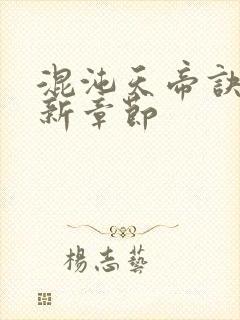 混沌天帝訣
新章節
楊志藝